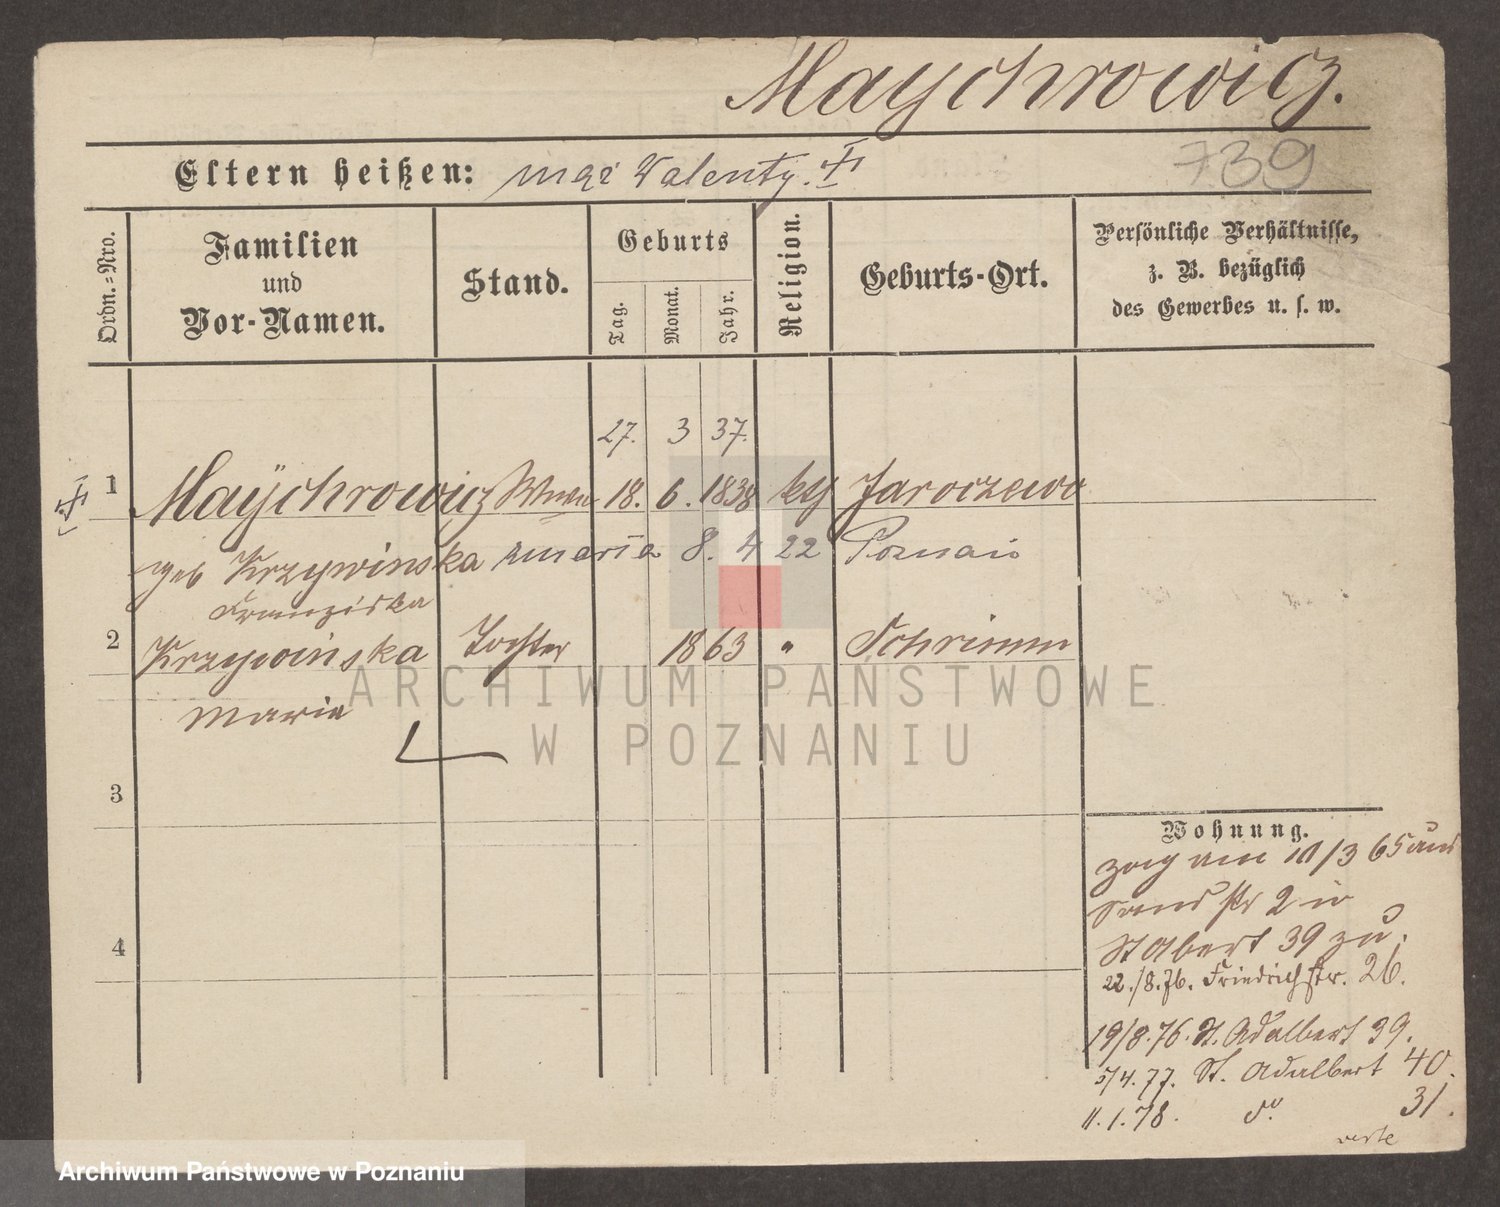 Maychrowicz.
739
Eltern heißen: mąż Walenty.
Ordn.-Nro.
Familien und Vor-Namen.
Stand.
Geburts
Tag.
Monat.
Jahr.
Religion.
Geburts-Ort.
Persönliche Verhältnisse, z. B. bezüglich des Gewerbes u. s. w.
27. 3 37.
1 Maychrowicz 18. 6. 1838 Jaroczewo
geb Krzywinska 8. 4 22 Poznań
Franziska
2 Krzywinska Tochter 1863 " Schrimm
Marie
3
4
Wohnung.
zog am 10/3 65 aus
Sand str 2 in
St Albert 39 zu.
22./8.76. Friedrichstr. 26.
19/8.76. St. Adalbert 39.
5/4.77. St. Adalbert 40.
11.1.78. do 31.
verte
ARCHIWUM PAŃSTWOWE
W POZNANIU
Archiwum Państwowe w Poznaniu